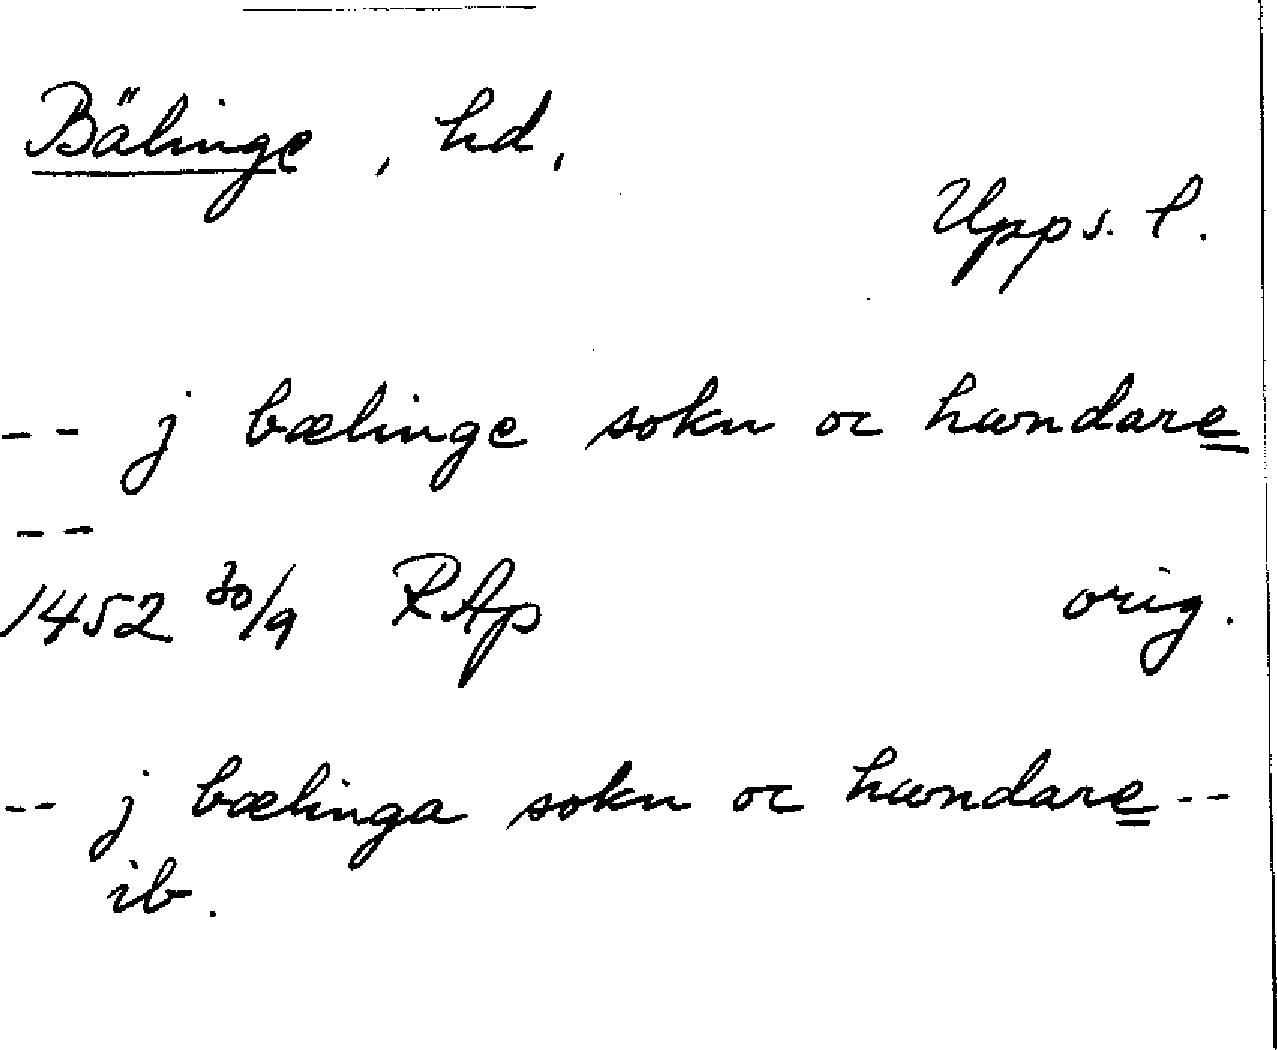 Bälinge, hd,
Upps. l.
-- j bælinge sokn oc hwndare
--
1452 30/9 RAp orig.
-- j bælinga sokn oc hwndare --
ib.